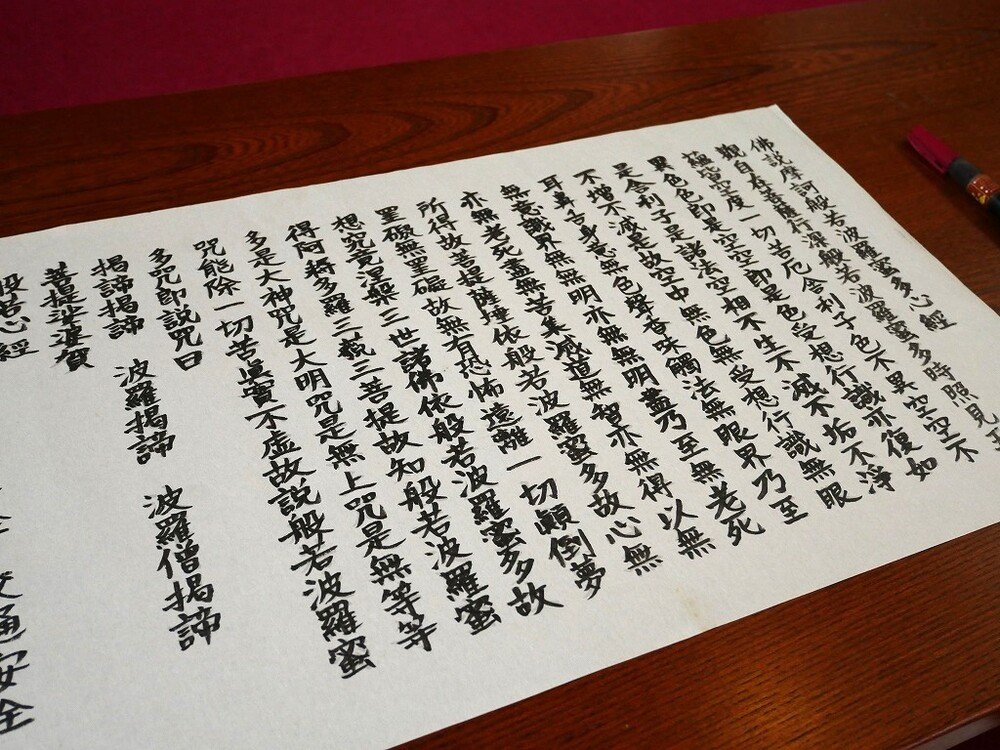 佛説摩訶般若波羅蜜多心經
觀自在菩薩行深般若波羅蜜多時照見五
蘊皆空度一切苦厄舎利子色不異空空不
異色色即是空空即是色受想行識亦復如
是舎利子是諸法空相不生不滅不垢不淨
不增不減是故空中無色無受想行識無眼
耳鼻舌身意無色聲香味觸法無眼界乃至
無意識界無無明亦無無明盡乃至無老死
亦無老死盡無苦集滅道無智亦無得以無
所得故菩提薩埵依般若波羅蜜多故心無
罣礙無罣礙故無有恐怖遠離一切顚倒夢
想究竟涅槃三世諸佛依般若波羅蜜多故
得阿耨多羅三藐三菩提故知般若波羅蜜
多是大神咒是大明咒是無上咒是無等等
咒能除一切苦眞實不虚故説般若波羅蜜
多咒即説咒曰
揭諦揭諦 波羅揭諦 波羅僧揭諦
菩提娑婆賀
般若心經
交通安全